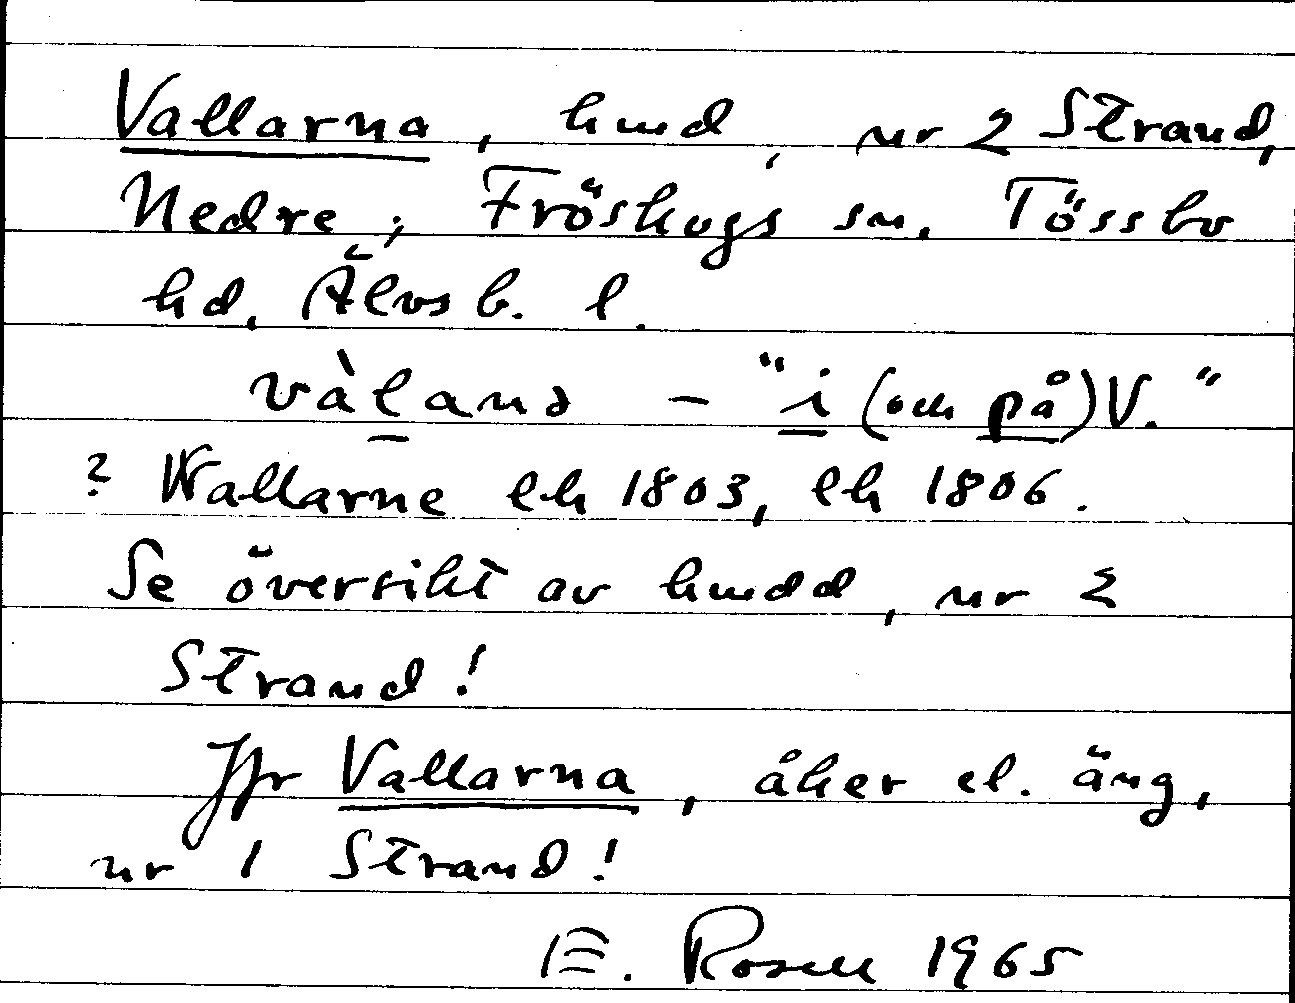 Vallarna, hmd, nr 2 Strand,
Nedre; Fröskogs sn. Tössbo
hd. Älvsb. l.
vàḻanɘ – "i (och på) V."
? Wallarne eh 1803, eh 1806.
Se översikt av hmdd, nr 2
Strand!
Jfr Vallarna, åker el. äng,
nr 1 Strand!
E. Rosell 1965